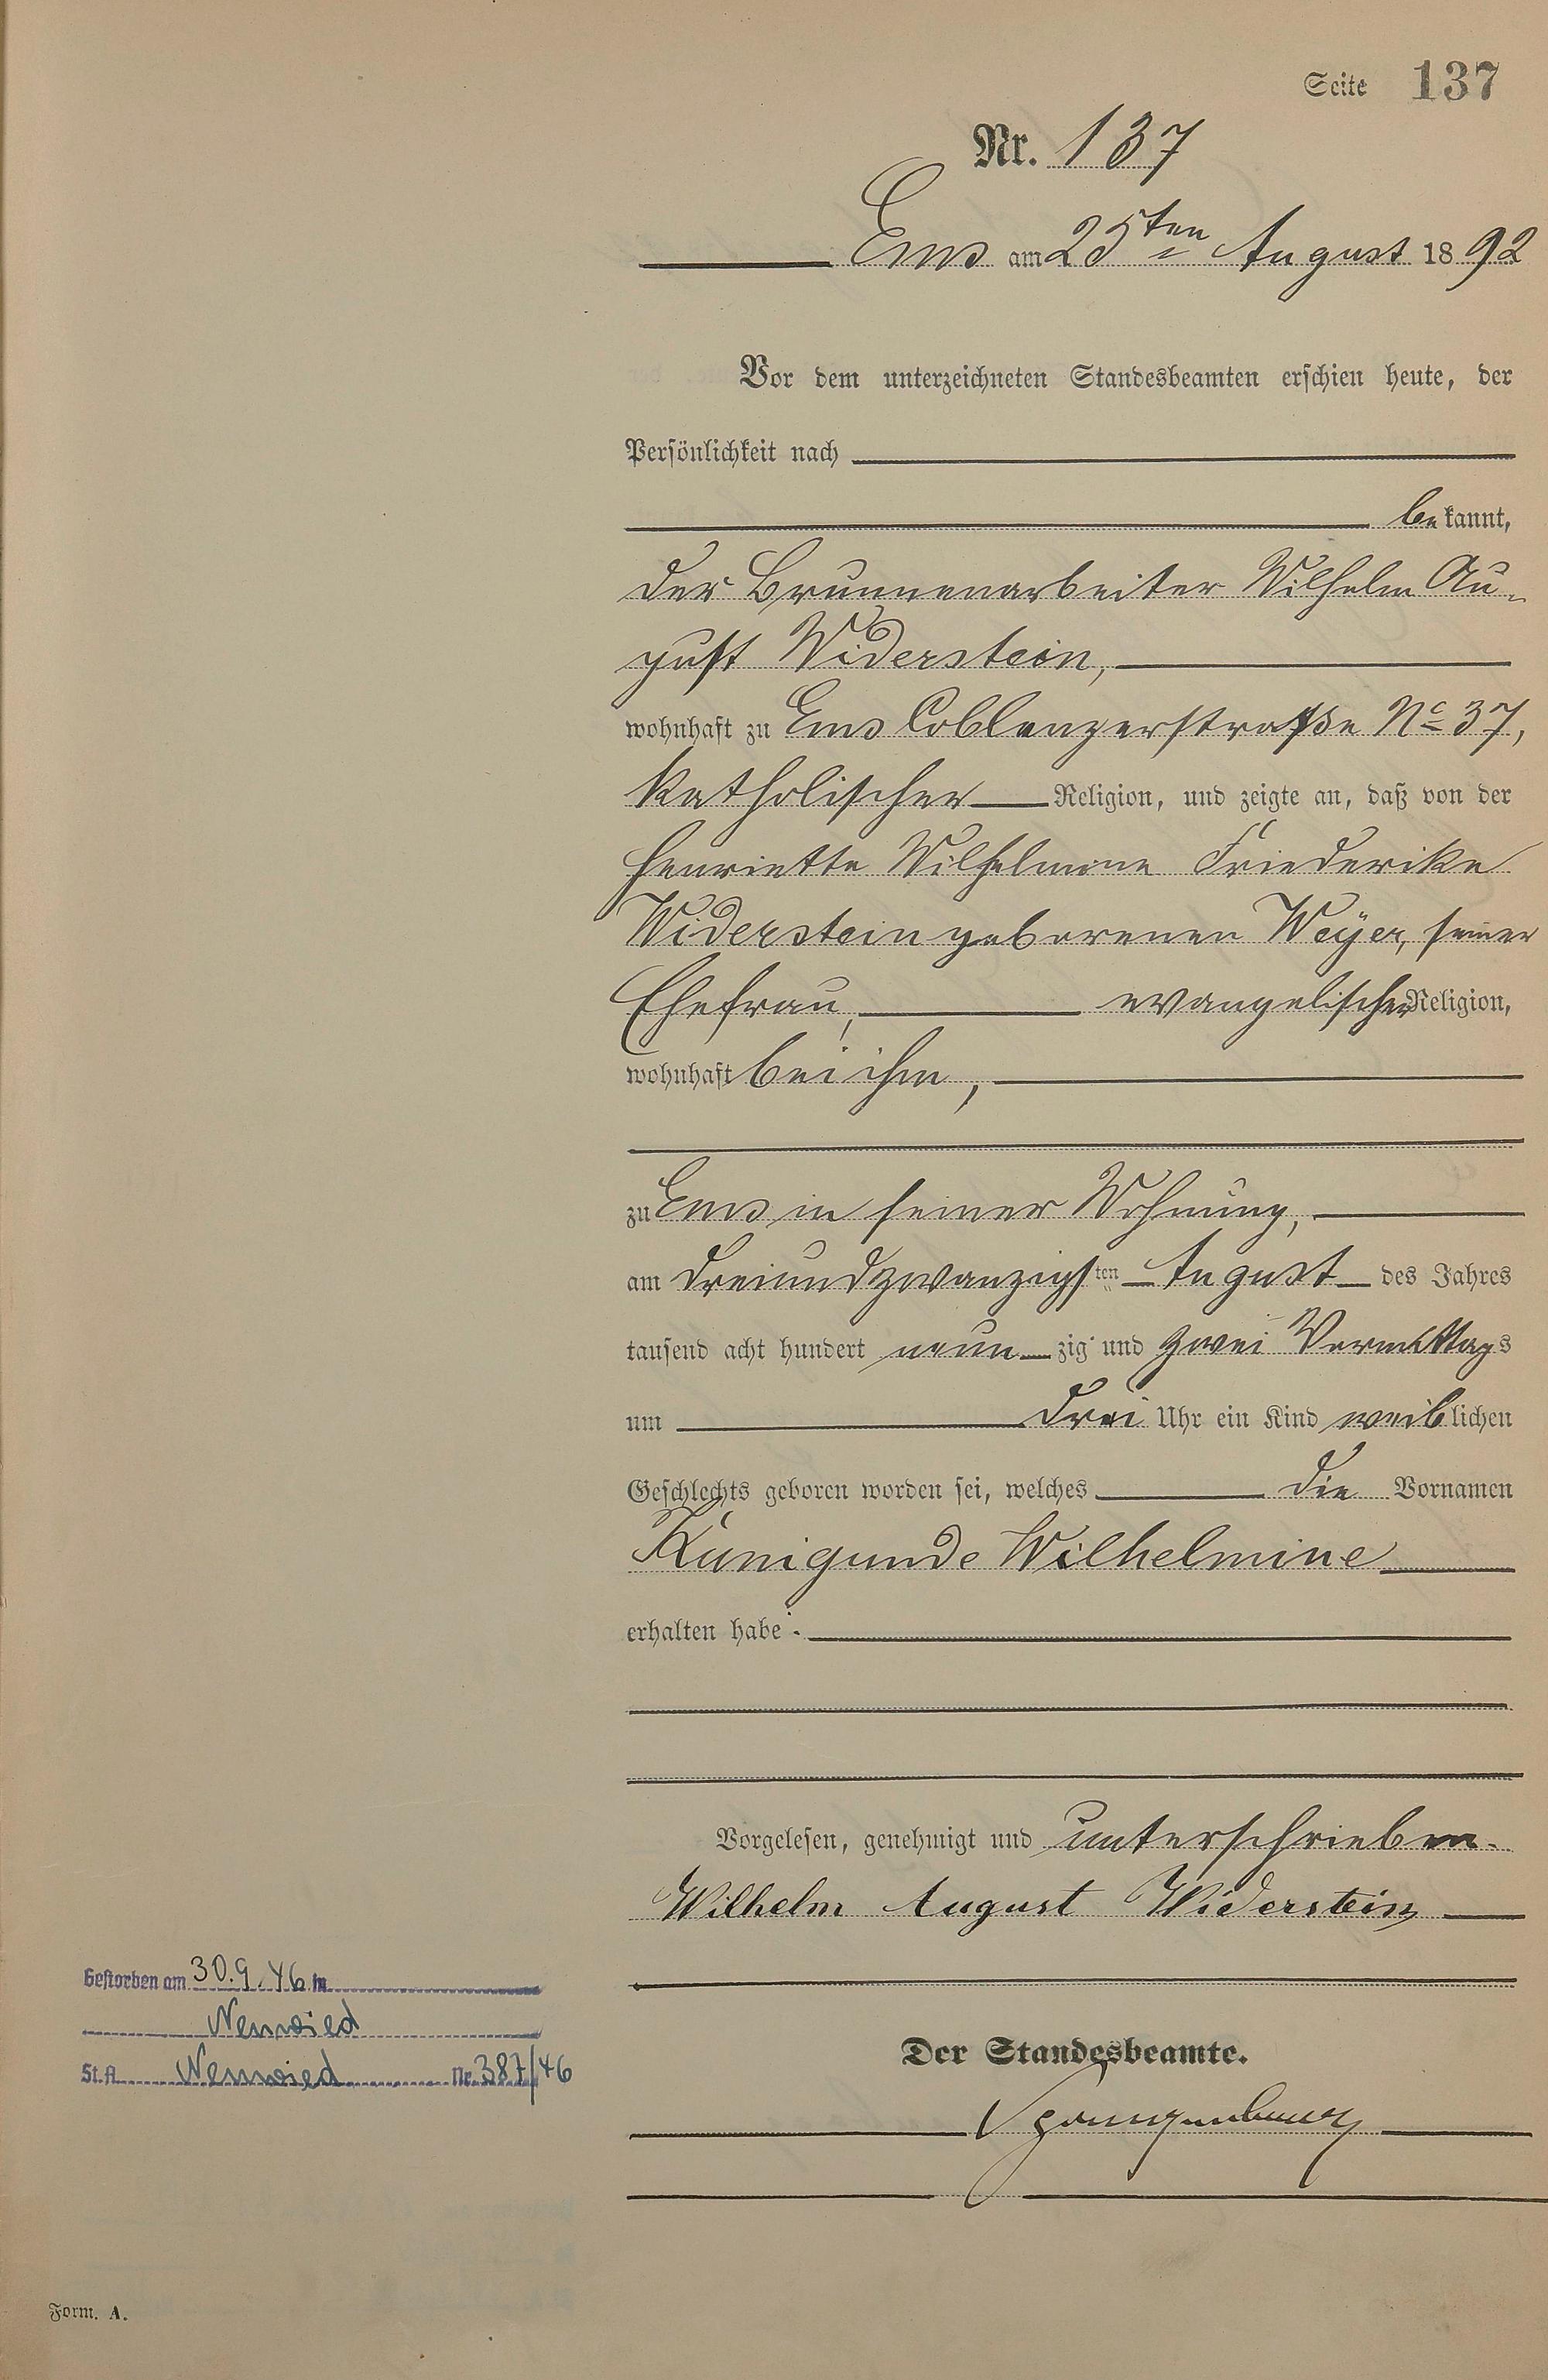 Seite 137
Nr. 137
Ems am 25ten August 1892
Vor dem unterzeichneten Standesbeamten erschien heute, der
Persönlichkeit nach
bekannt,
der Brunnenarbeiter Wilhelm Au-
gust Widerstein,
wohnhaft zu Ems Coblenzerstraße No 37,
katholischer Religion, und zeigte an, daß von der
Henriette Wilhelmine Friederike
Widerstein geborenen Weyer, seiner
Ehefrau, evangelischer Religion,
wohnhaft bei ihm,
zu Ems in seiner Wohnung,
am dreiundzwanzigsten August des Jahres
tausend acht hundert neunzig und zwei Vormittags
um drei Uhr ein Kind weiblichen
Geschlechts geboren worden sei, welches die Vornamen
Kunigunde Wilhelmine
erhalten habe.
Vorgelesen, genehmigt und unterschrieben.
Wilhelm August Widerstein
Gestorben am 30.9.46 in
Neuwied
St.A. Neuwied Nr. 387/46
Der Standesbeamte.
Form. A.